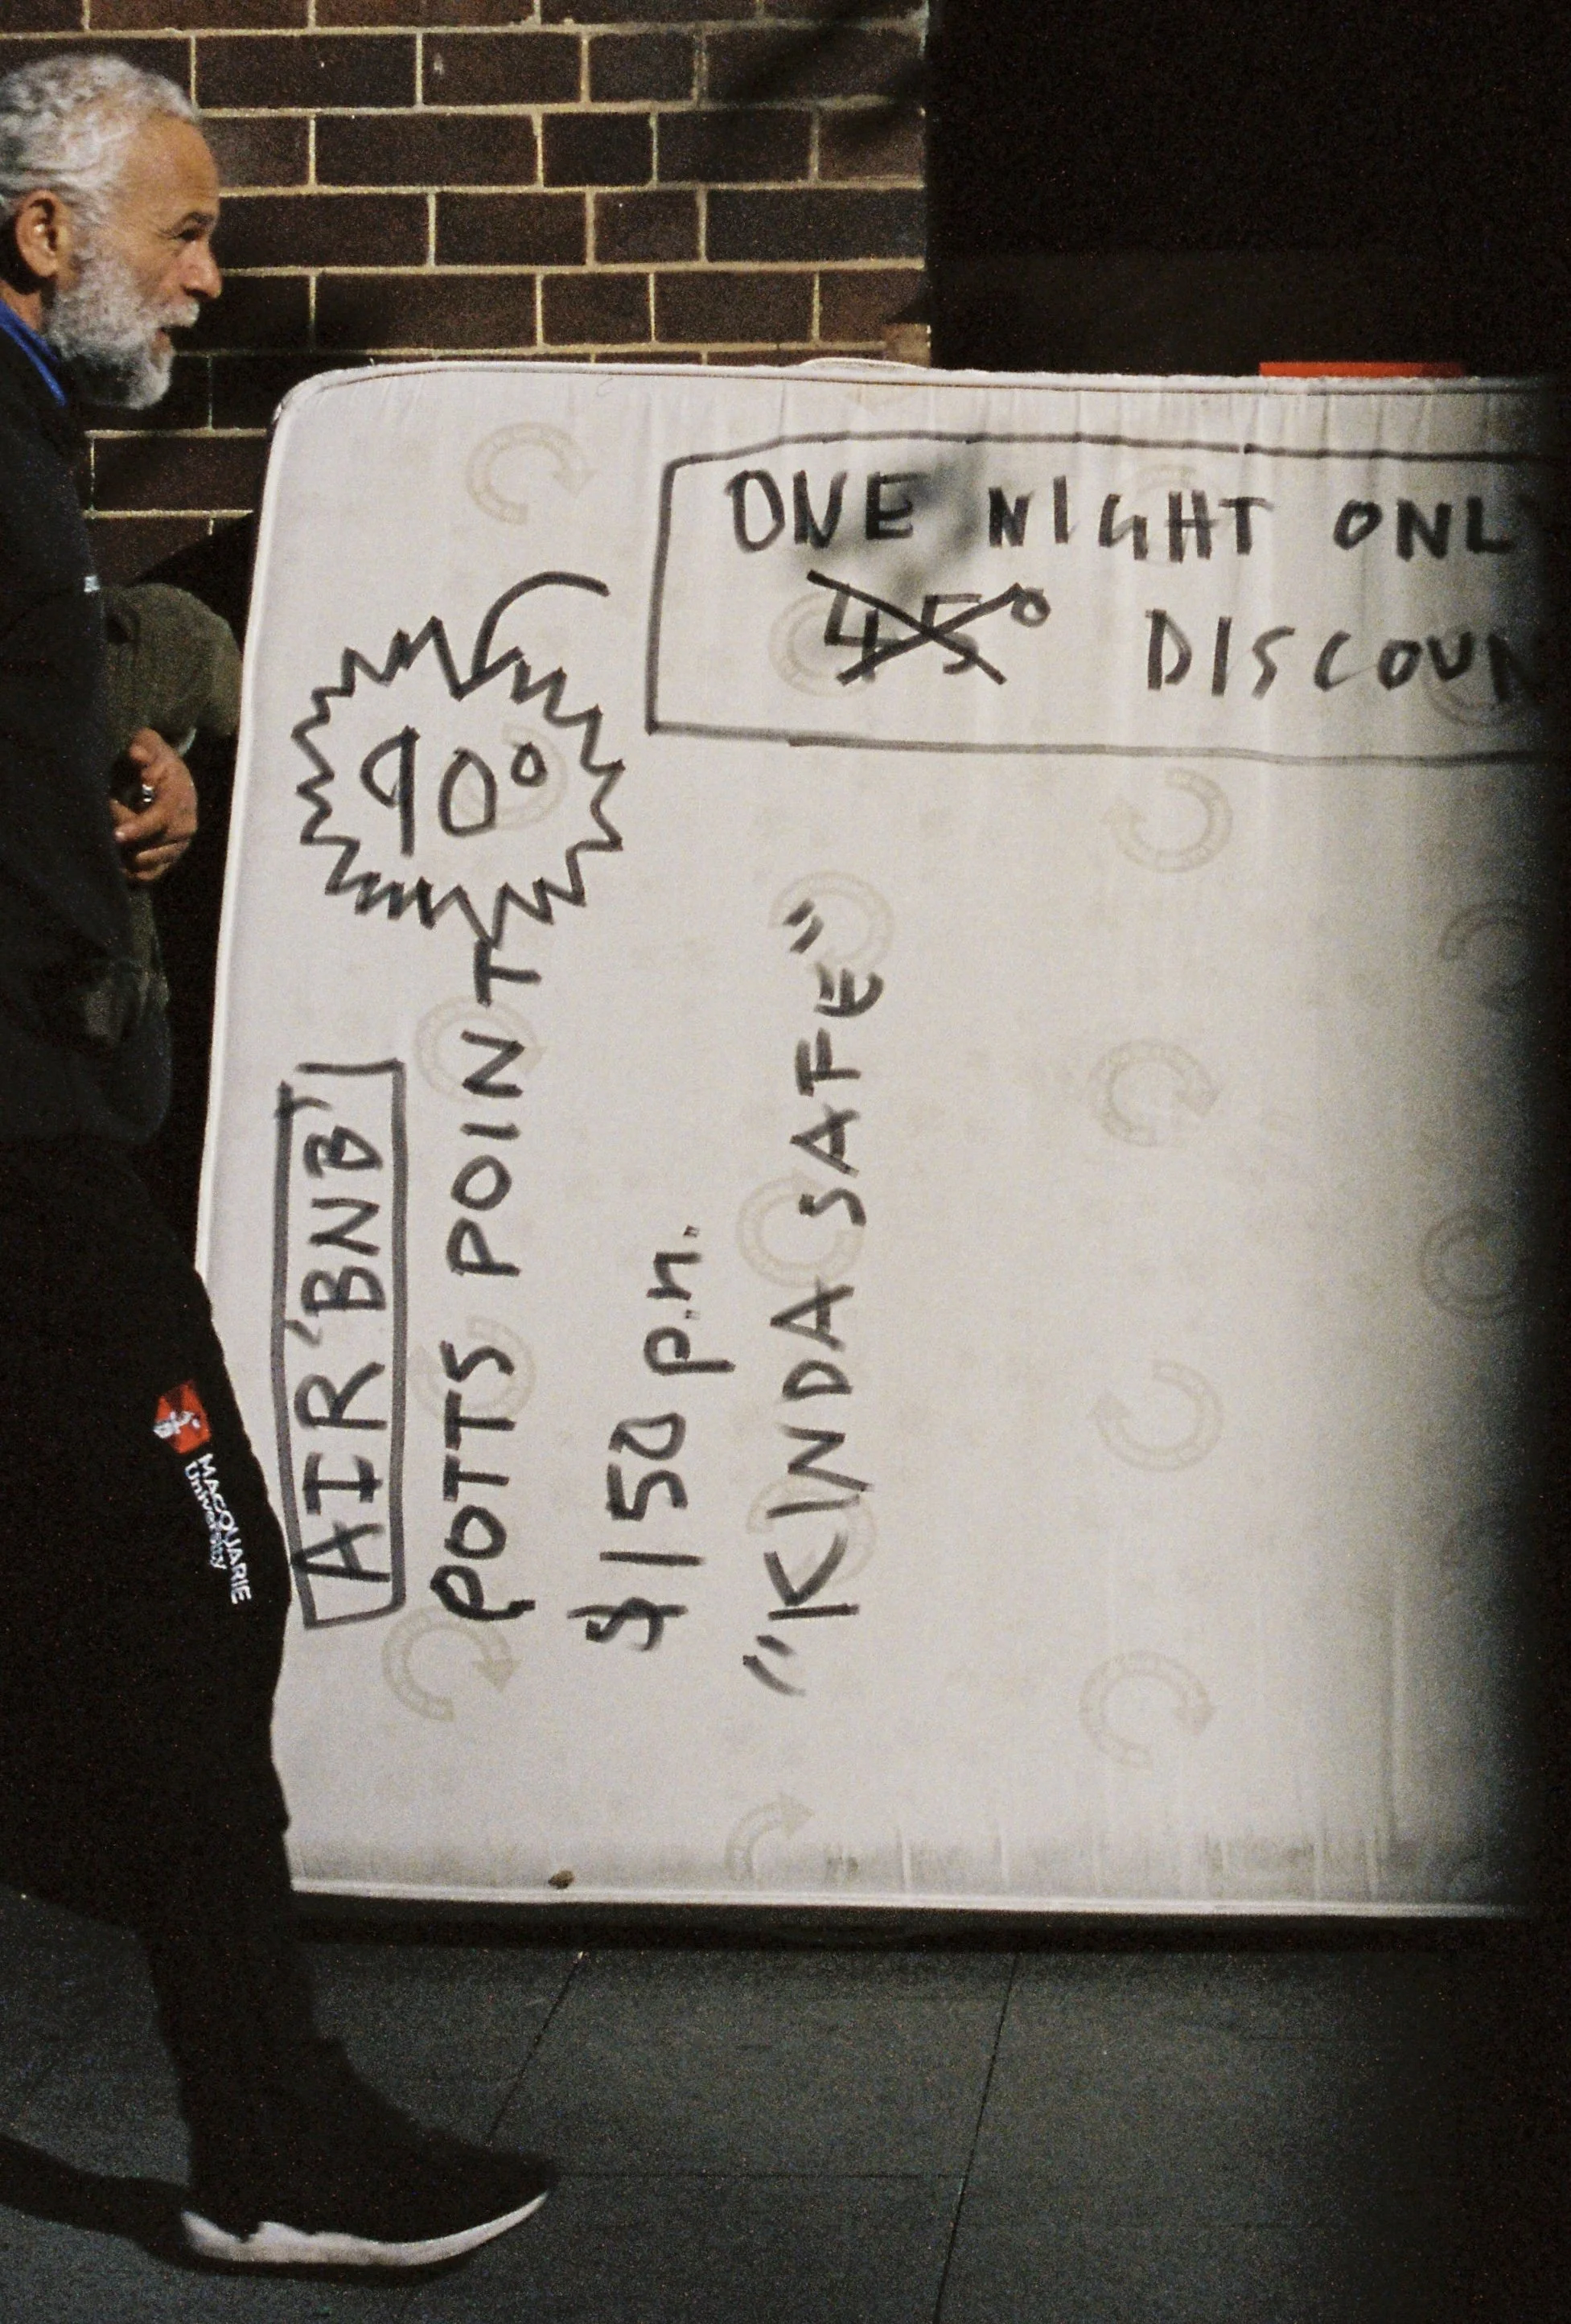 ONE NIGHT ONL
45° DISCOUN
90°
AIR'BNB'
POTTS POINT
$150 p.n.
"KINDA SAFE"
MACQUARIE
University